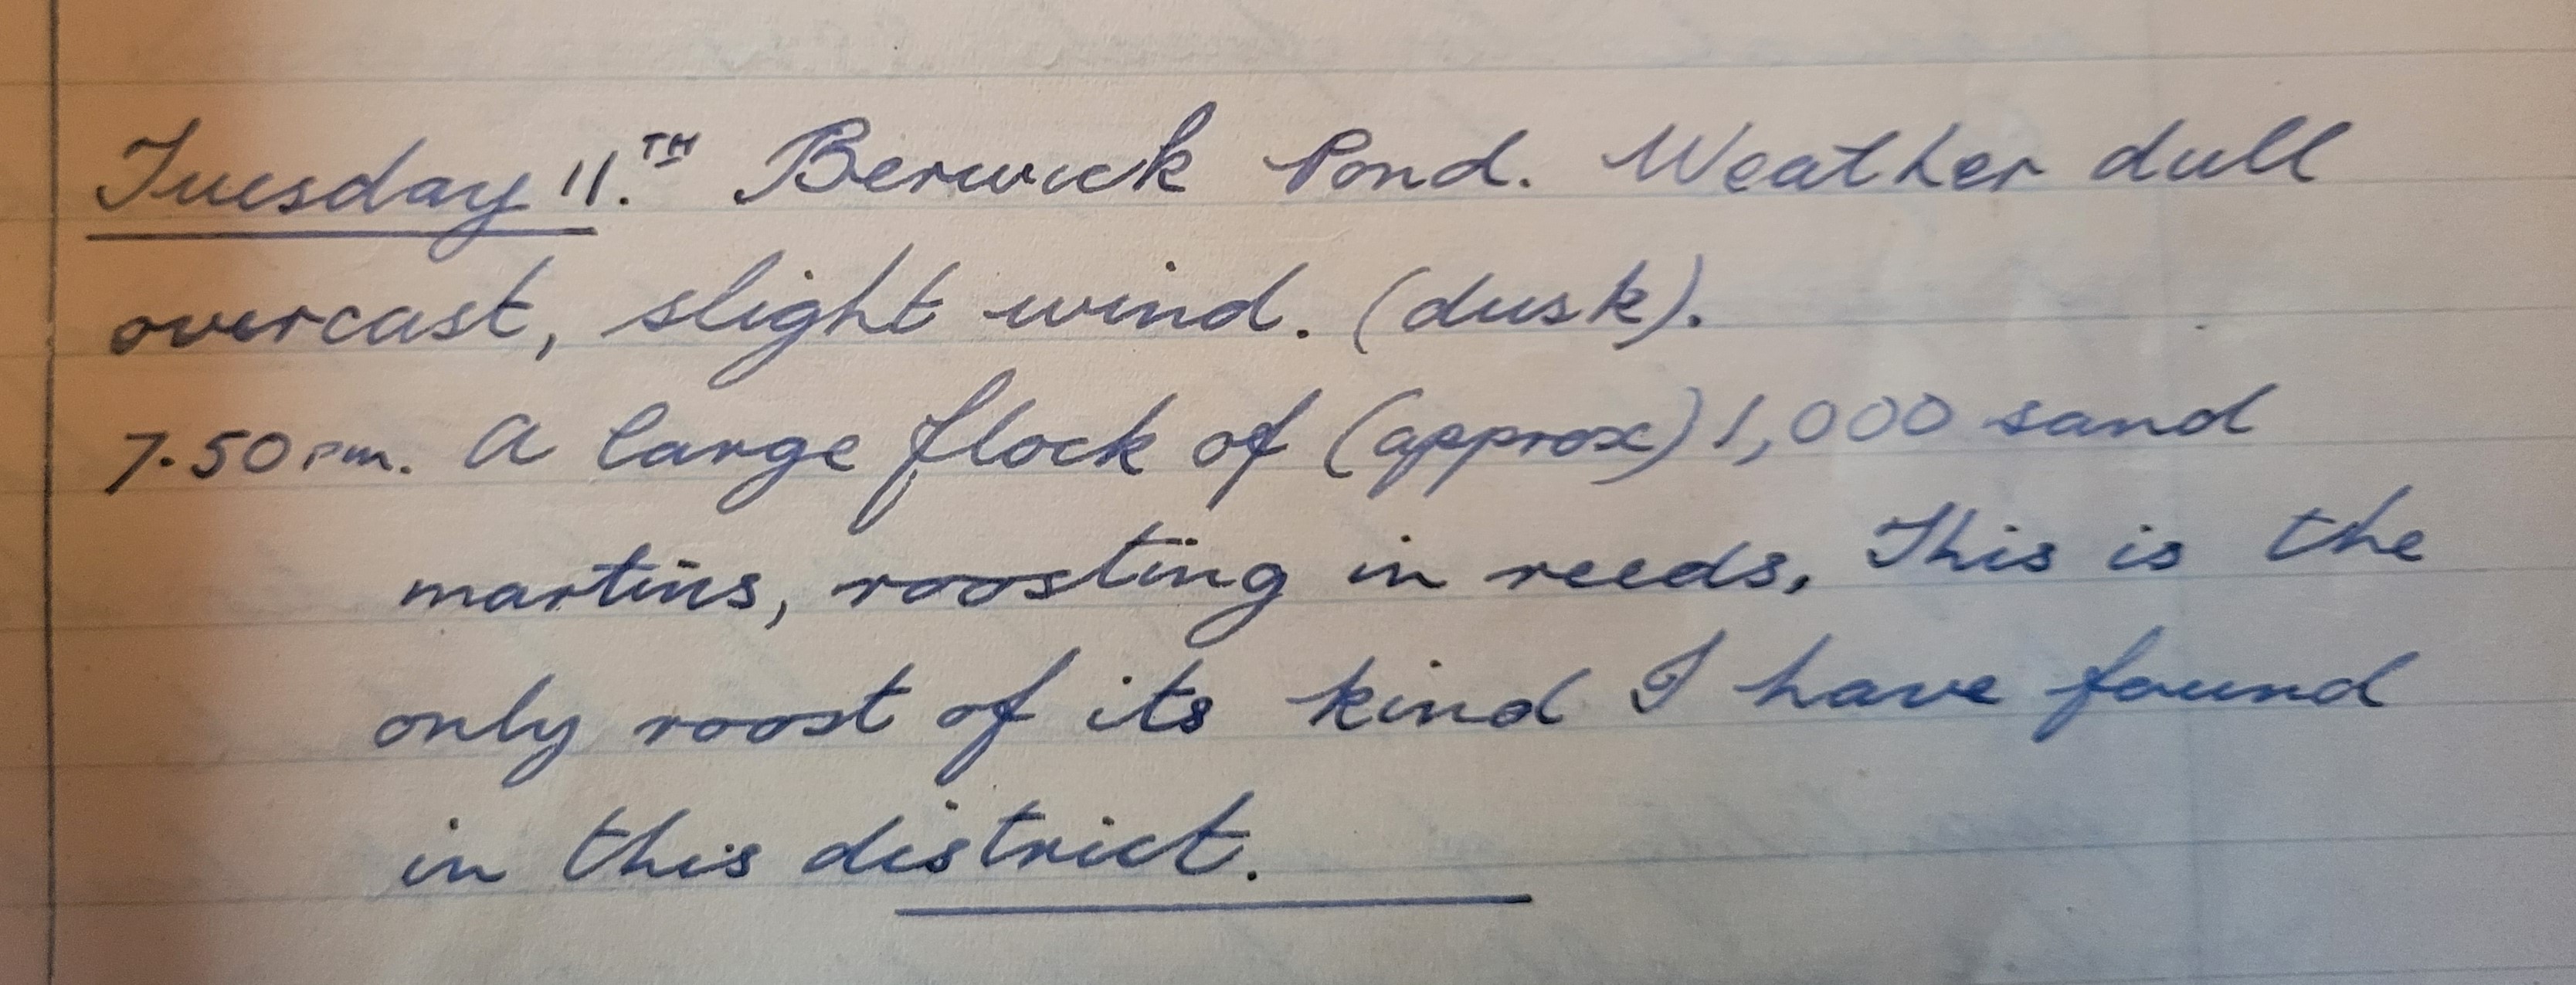 Tuesday 11.TH Berwick Pond. Weather dull
overcast, slight wind. (dusk).
7.50 pm. A large flock of (approx) 1,000 sand
martins, roosting in reeds, This is the
only roost of its kind I have found
in this district.